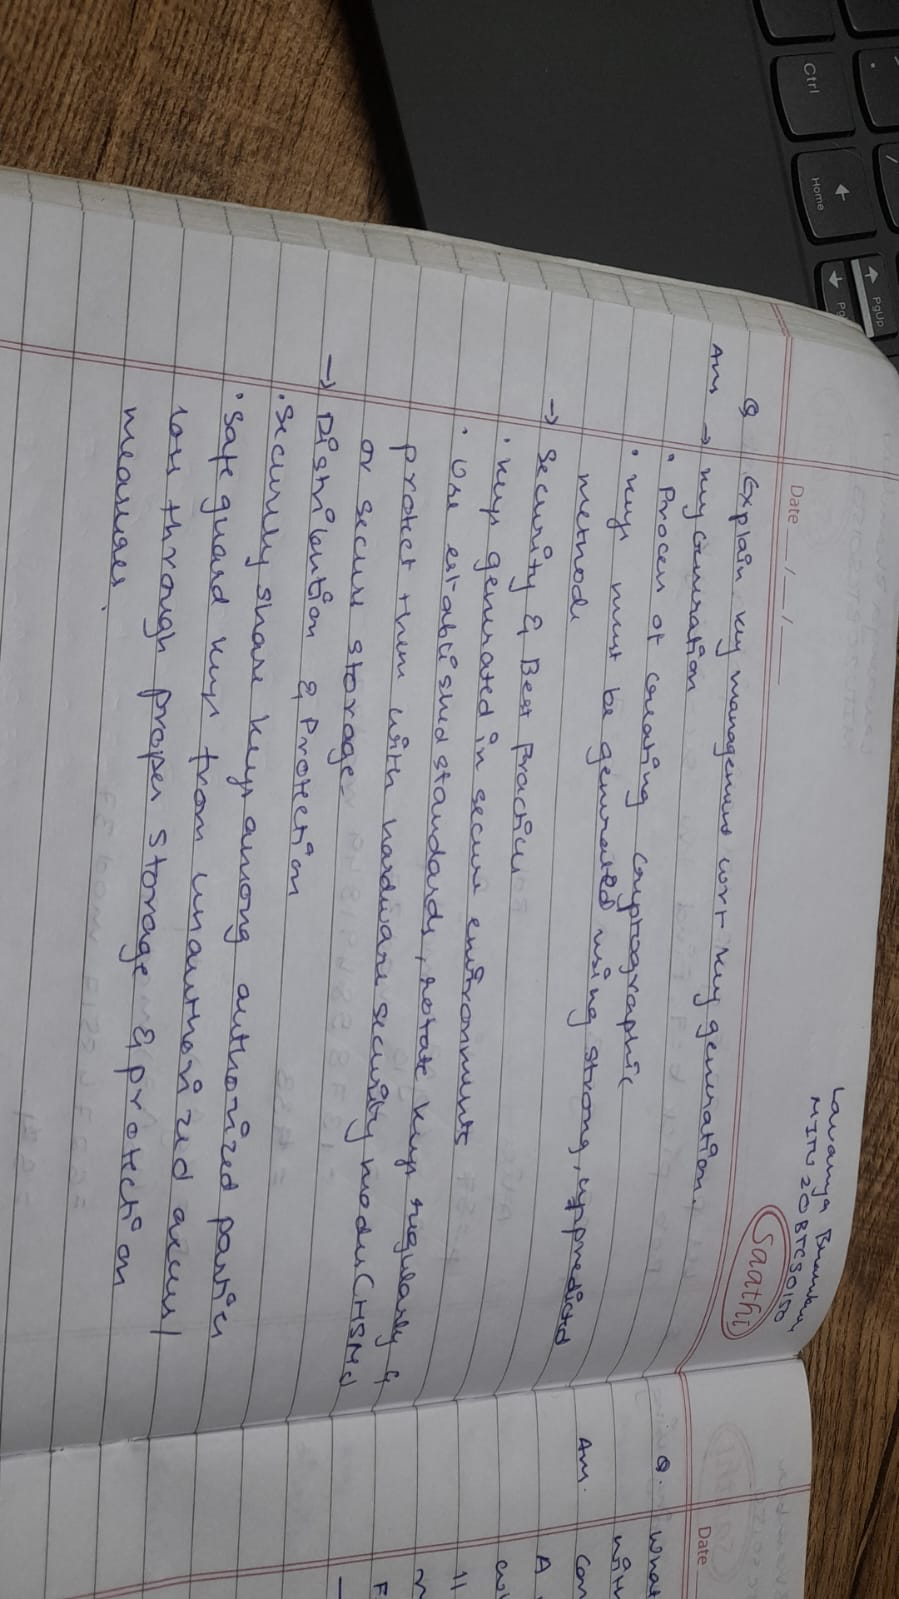 Lavanya
MITU20BTCS0150
Saathi
Date __/__/____
Q Explain key management wrt key generation.
Ans → Key Generation
• Process of creating cryptographic
• keys must be generated using strong, uppredictd
methods
→ Security & Best Practices
• keys generated in secure environments
• Use established standards, rotate keys regularly &
protect them with hardware security modules (HSMs)
or secure storage.
→ Distribution & Protection
• Securely share keys among authorized parties
• Safe guard keys from unauthorized access/
loss through proper storage & protection
measures.
Date
Q. What
with
Ans. Con
A
Ctrl
Home
PgUp